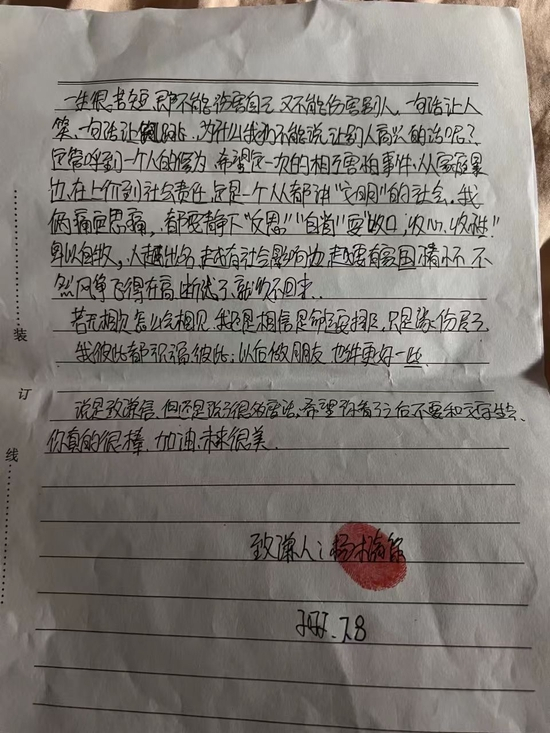 一生很苦短,即不能伤害自己,又不能伤害别人,一句话让人
笑、一句话让人跳,为什么我们不能说让别人高兴的话呢?
这关乎到一个人的修为,希望这一次的相互害怕事件,从家庭暴
力,在上价到社会责任,这是一个人都讲"文明"的社会,我
俩痛定思痛,都要静下"反思""自省"要"收口,收心,收性"
卑以自牧,人越出名,越有社会影响力,越要有家国情怀,不
然风筝飞得在高,断线了就收不回来.
若无相欠怎会相见,我还是相信是命运安排,只是缘份尽了,
我彼此都祝福彼此;以后做朋友也许更好一些.
说是致谦信,但还是说了很多废话,希望你看了之后不要和文字生气,
你真的很棒,加油,未来很美.
致谦人:
7.8
装
订
线